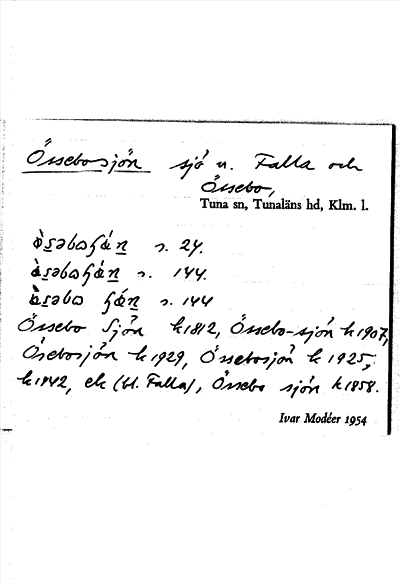 Össebosjön sjö n. Falla och
Össebo,
Tuna sn, Tunaläns hd, Klm. l.
s. 24.
s. 144.
s. 144
Össebo Sjön k1812, Össebo-sjön k1907,
Ösebosjön k1929, Össebosjön k1925,
k1942, ek (bl. Falla), Össebo sjön k1858.
Ivar Modéer 1954